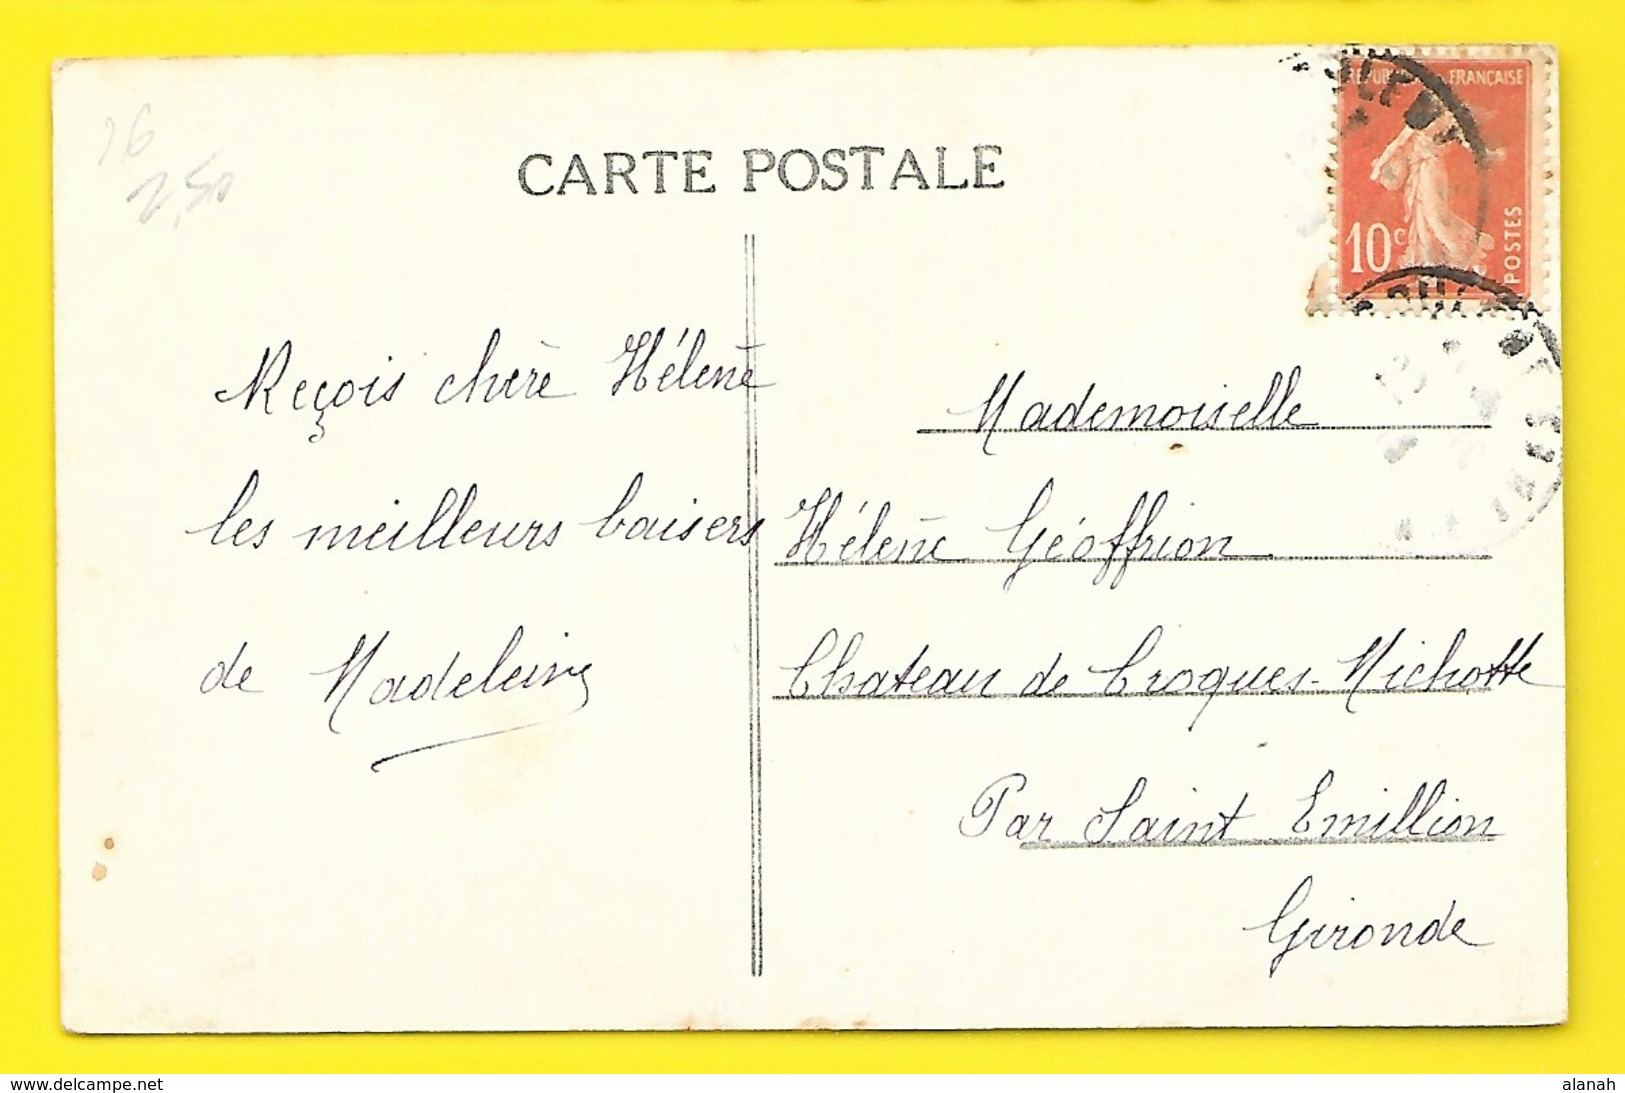 16
2,50
CARTE POSTALE
REPUBLIQUE FRANÇAISE
10c
POSTES
Reçois chère Hélène
les meilleurs baisers
de Madeleine
Mademoiselle
Hélène Géoffrion
Chateau de Croques-Michotte
Par Saint Emillion
Gironde
delcampe.net
alanah